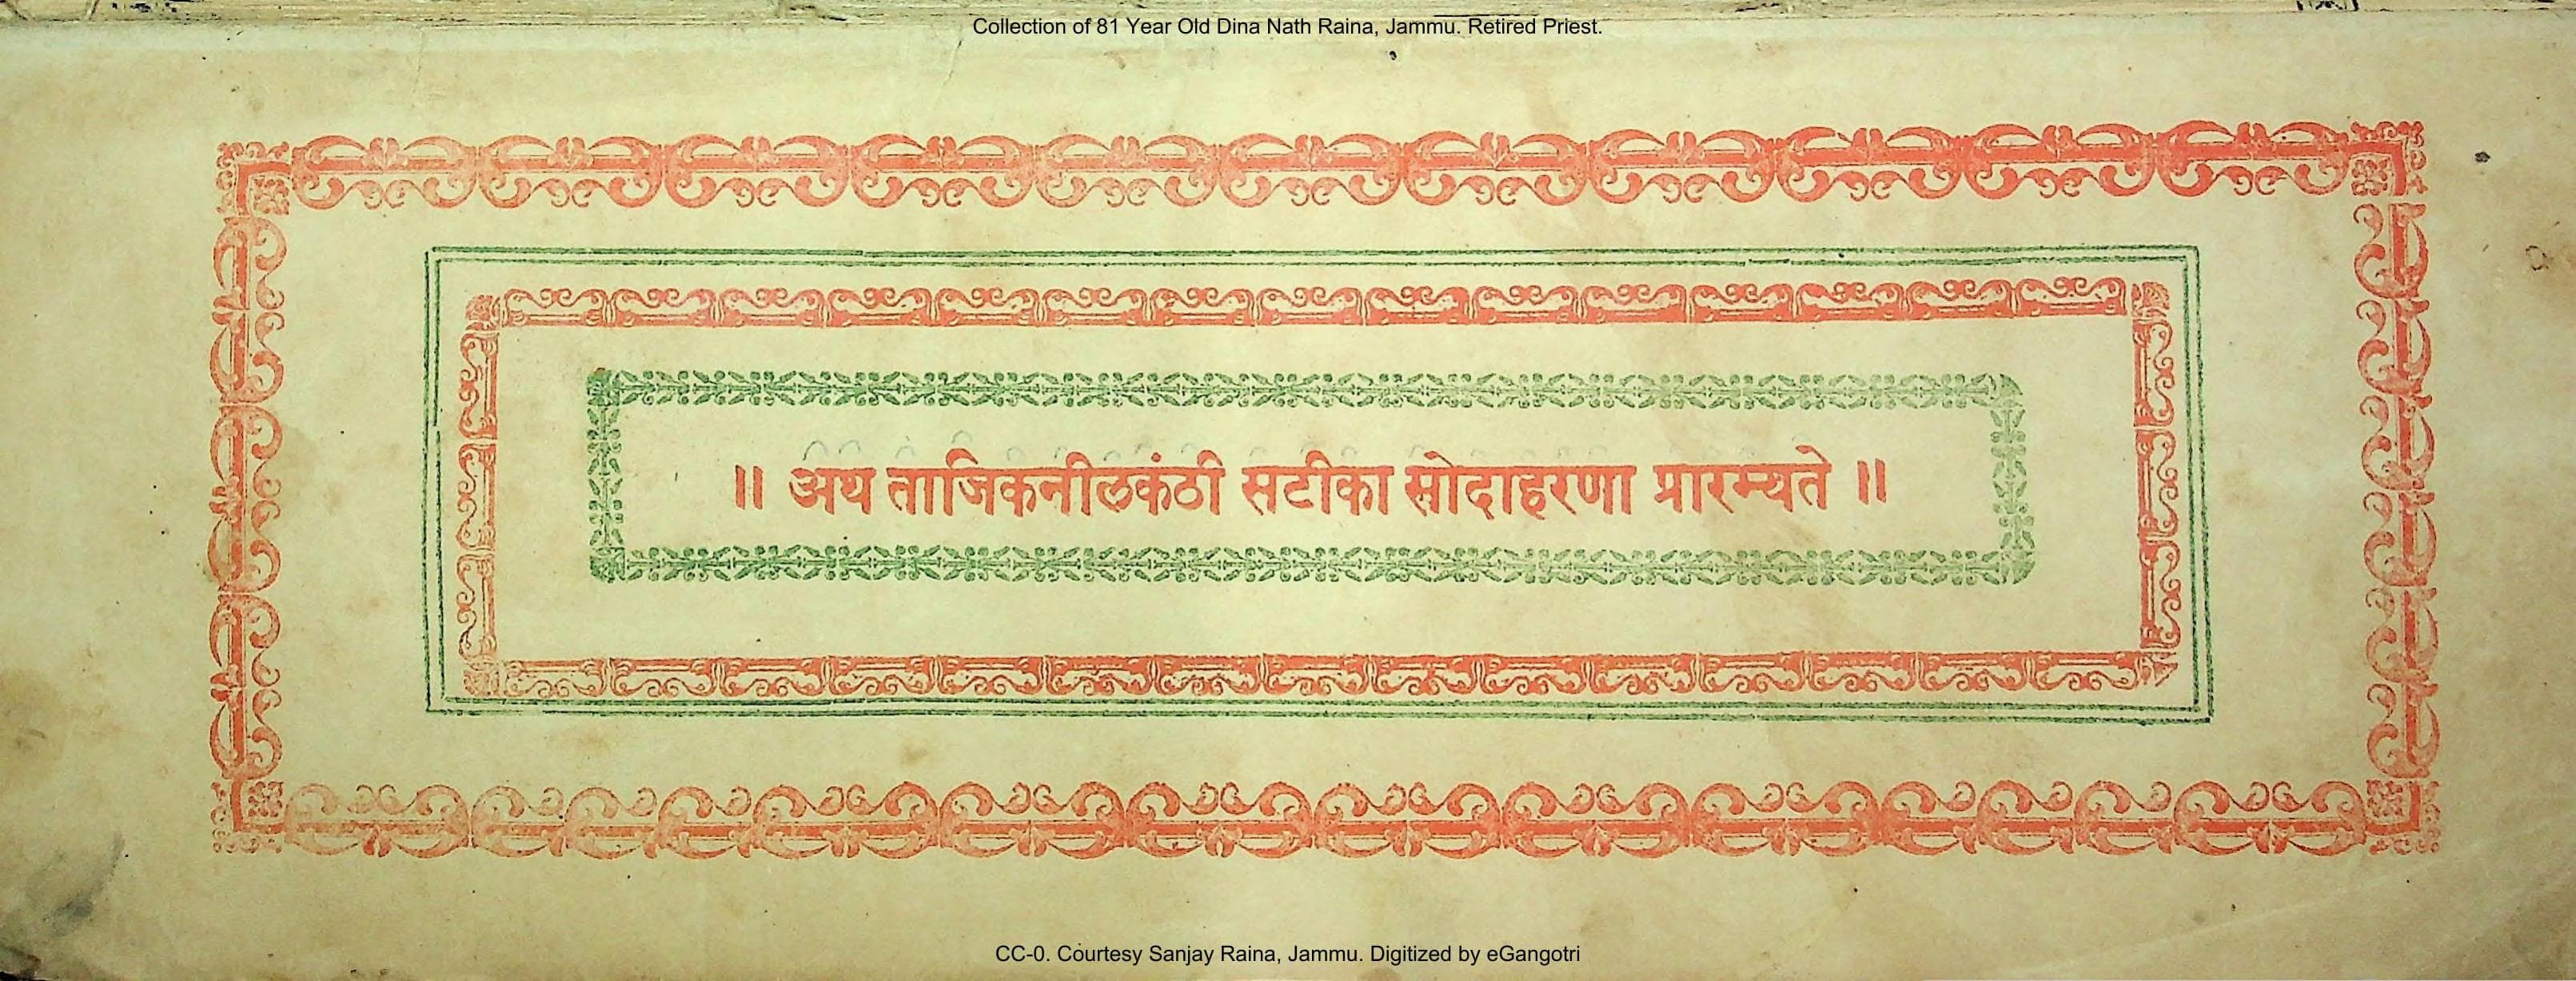 Collection of 81 Year Old Dina Nath Raina, Jammu. Retired Priest.
॥ अथ ताजिकनीलकंठी सटीका सोदाहरणा प्रारभ्यते ॥
CC-0. Courtesy Sanjay Raina, Jammu. Digitized by eGangotri